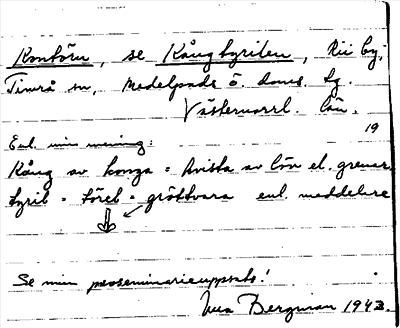 Kontörn, se Kångtyrilen, Rii by,
Timrå sn, Medelpads ö. doms. tg.
Västernorrl. län.
19
Enl. min mening:
Kång av konga = Avista av löv el. grenar
tyril = törel = grötvara enl. meddelare
Se min proseminarieuppsats!
Bergman 1943.